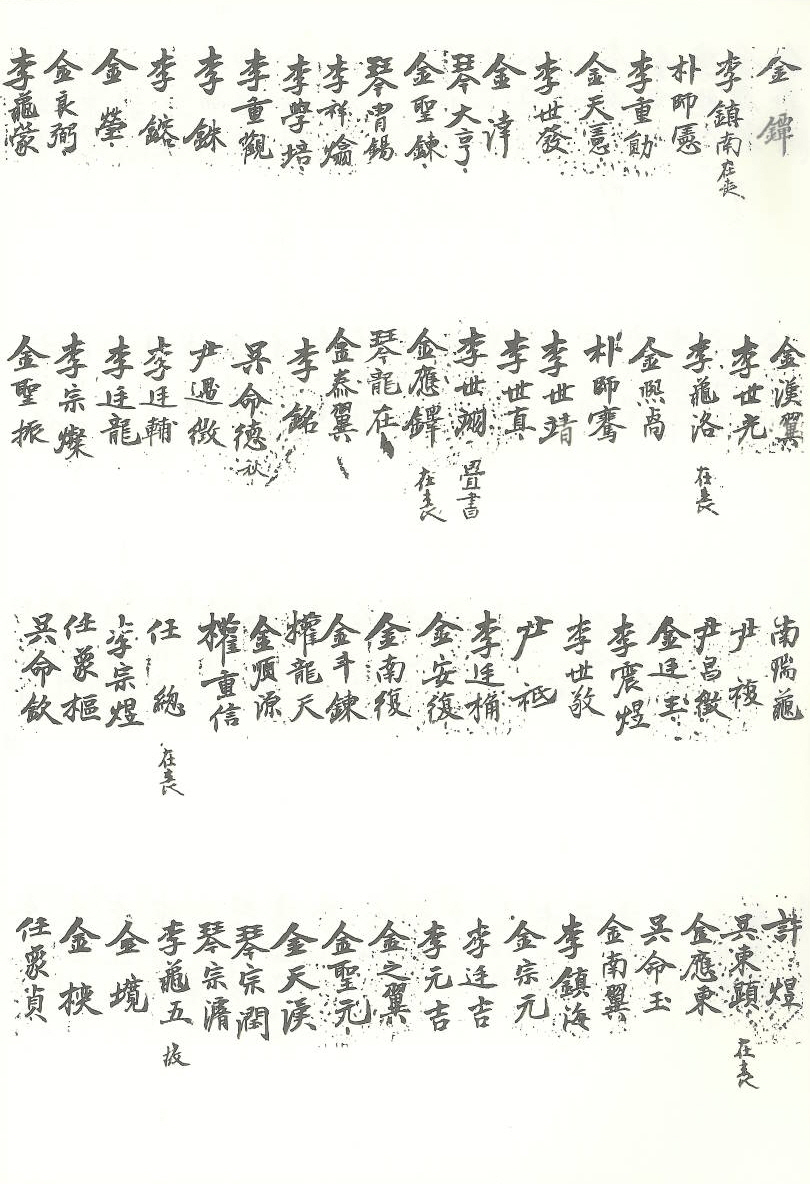 金鐸
李鎮南 在喪
朴師愿
李重勛
金天憲
李世發
金涬
琴大亨
金聖鍊
琴胃錫
李祥爚
李學培
李重觀
李銖
李鎔
金瑩
金良弼
李龜蒙
金漢翼
李世光
李龜洛 在喪
金熙卨
朴師騫
李世瑨
李世真
李世翊 疊書
金應鐸 在喪
琴龍在
金泰翼
李銘
吳命德 秋
尹遇徵
李廷輔
李廷龍
李宗燦
金聖振
南瑞龜
尹𧙗
尹昌徵
金廷玉
李震煜
李世敬
尹祗
李廷楠
金安復
金南復
金斗鍊
權龍天
金順源
權重信
任總 在喪
李宗煜
任裒樞
吳命欽
許煜
吳東顯 在喪
金應東
吳命玉
金南翼
李鎮海
金宗元
李廷吉
李元吉
金之翼
金聖元
金天淏
琴宗潤
琴宗濳
李龜五
金境
金柍
任裒貞